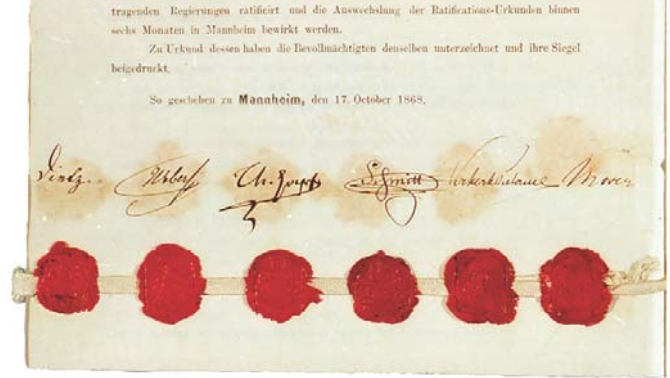 tragenden Regierungen ratificirt und die Auswechslung der Ratifications-Urkunden binnen
sechs Monaten in Mannheim bewirkt werden.
Zu Urkund dessen haben die Bevollmächtigten denselben unterzeichnet und ihre Siegel
beigedruckt.
So geschehen zu Mannheim, den 17. October 1868.
Dietz Schmitt